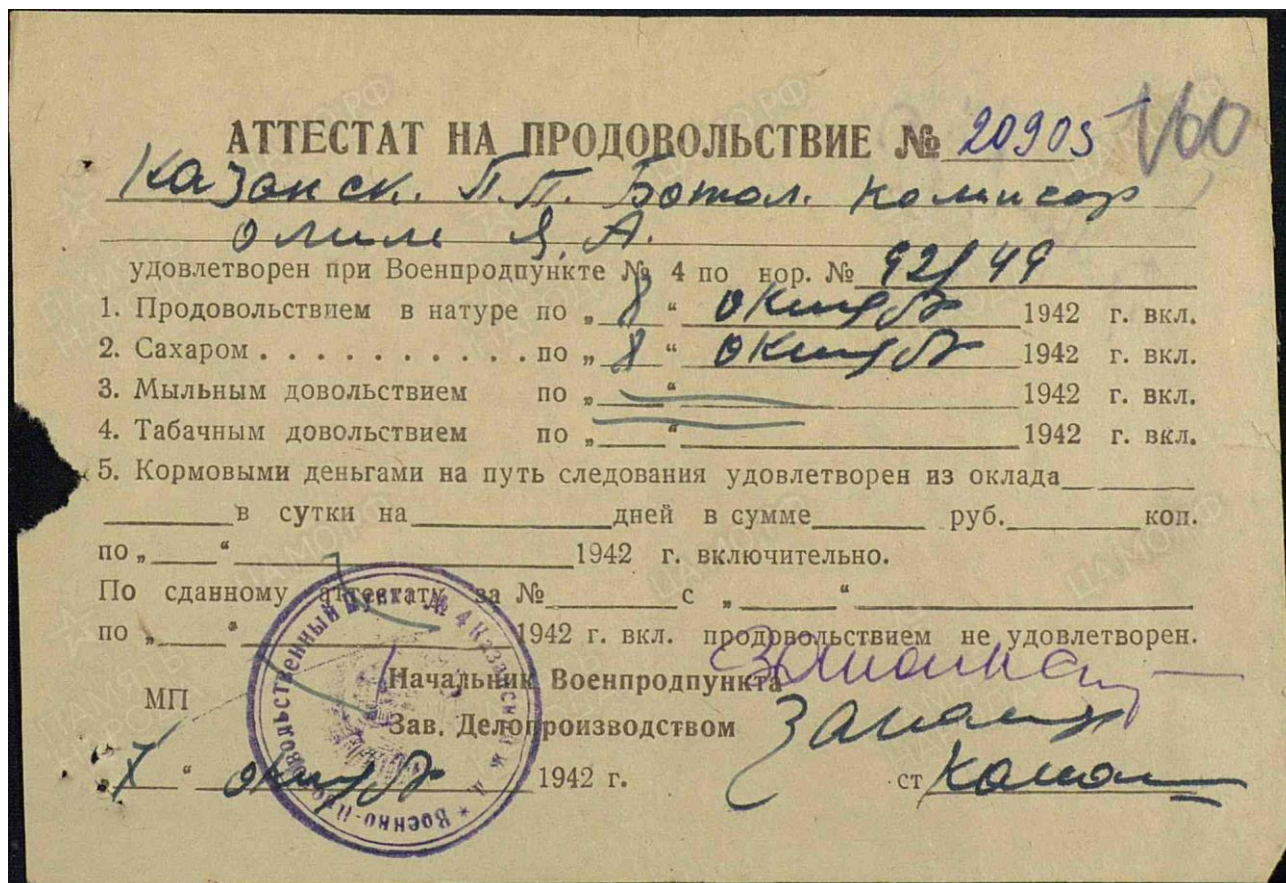 АТТЕСТАТ НА ПРОДОВОЛЬСТВИЕ № 20905 160
Казанск. П.П.Ботал. комисар
Я. А.
удовлетворен при Военпродпункте № 4 по нор. № 92/49
1. Продовольствием в натуре по „8“ октяб 1942 г. вкл.
2. Сахаром . . . . . . . . . . . по „8“ октяб 1942 г. вкл.
3. Мыльным довольствием по „ “ 1942 г. вкл.
4. Табачным довольствием по „ “ 1942 г. вкл.
5. Кормовыми деньгами на путь следования удовлетворен из оклада
в сутки на дней в сумме руб. коп.
по „ “ 1942 г. включительно.
По сданному аттестату за № с „ “
по „ “ 1942 г. вкл. продовольствием не удовлетворен.
МП Начальник Военпродпункта
Зав. Делопроизводством
„7“ октяб 1942 г. ст
Военно-Продовольственный пункт № 4 Казанской ж. д.
ПАМЯТЬ НАРОДА
ЦАМО.РФ